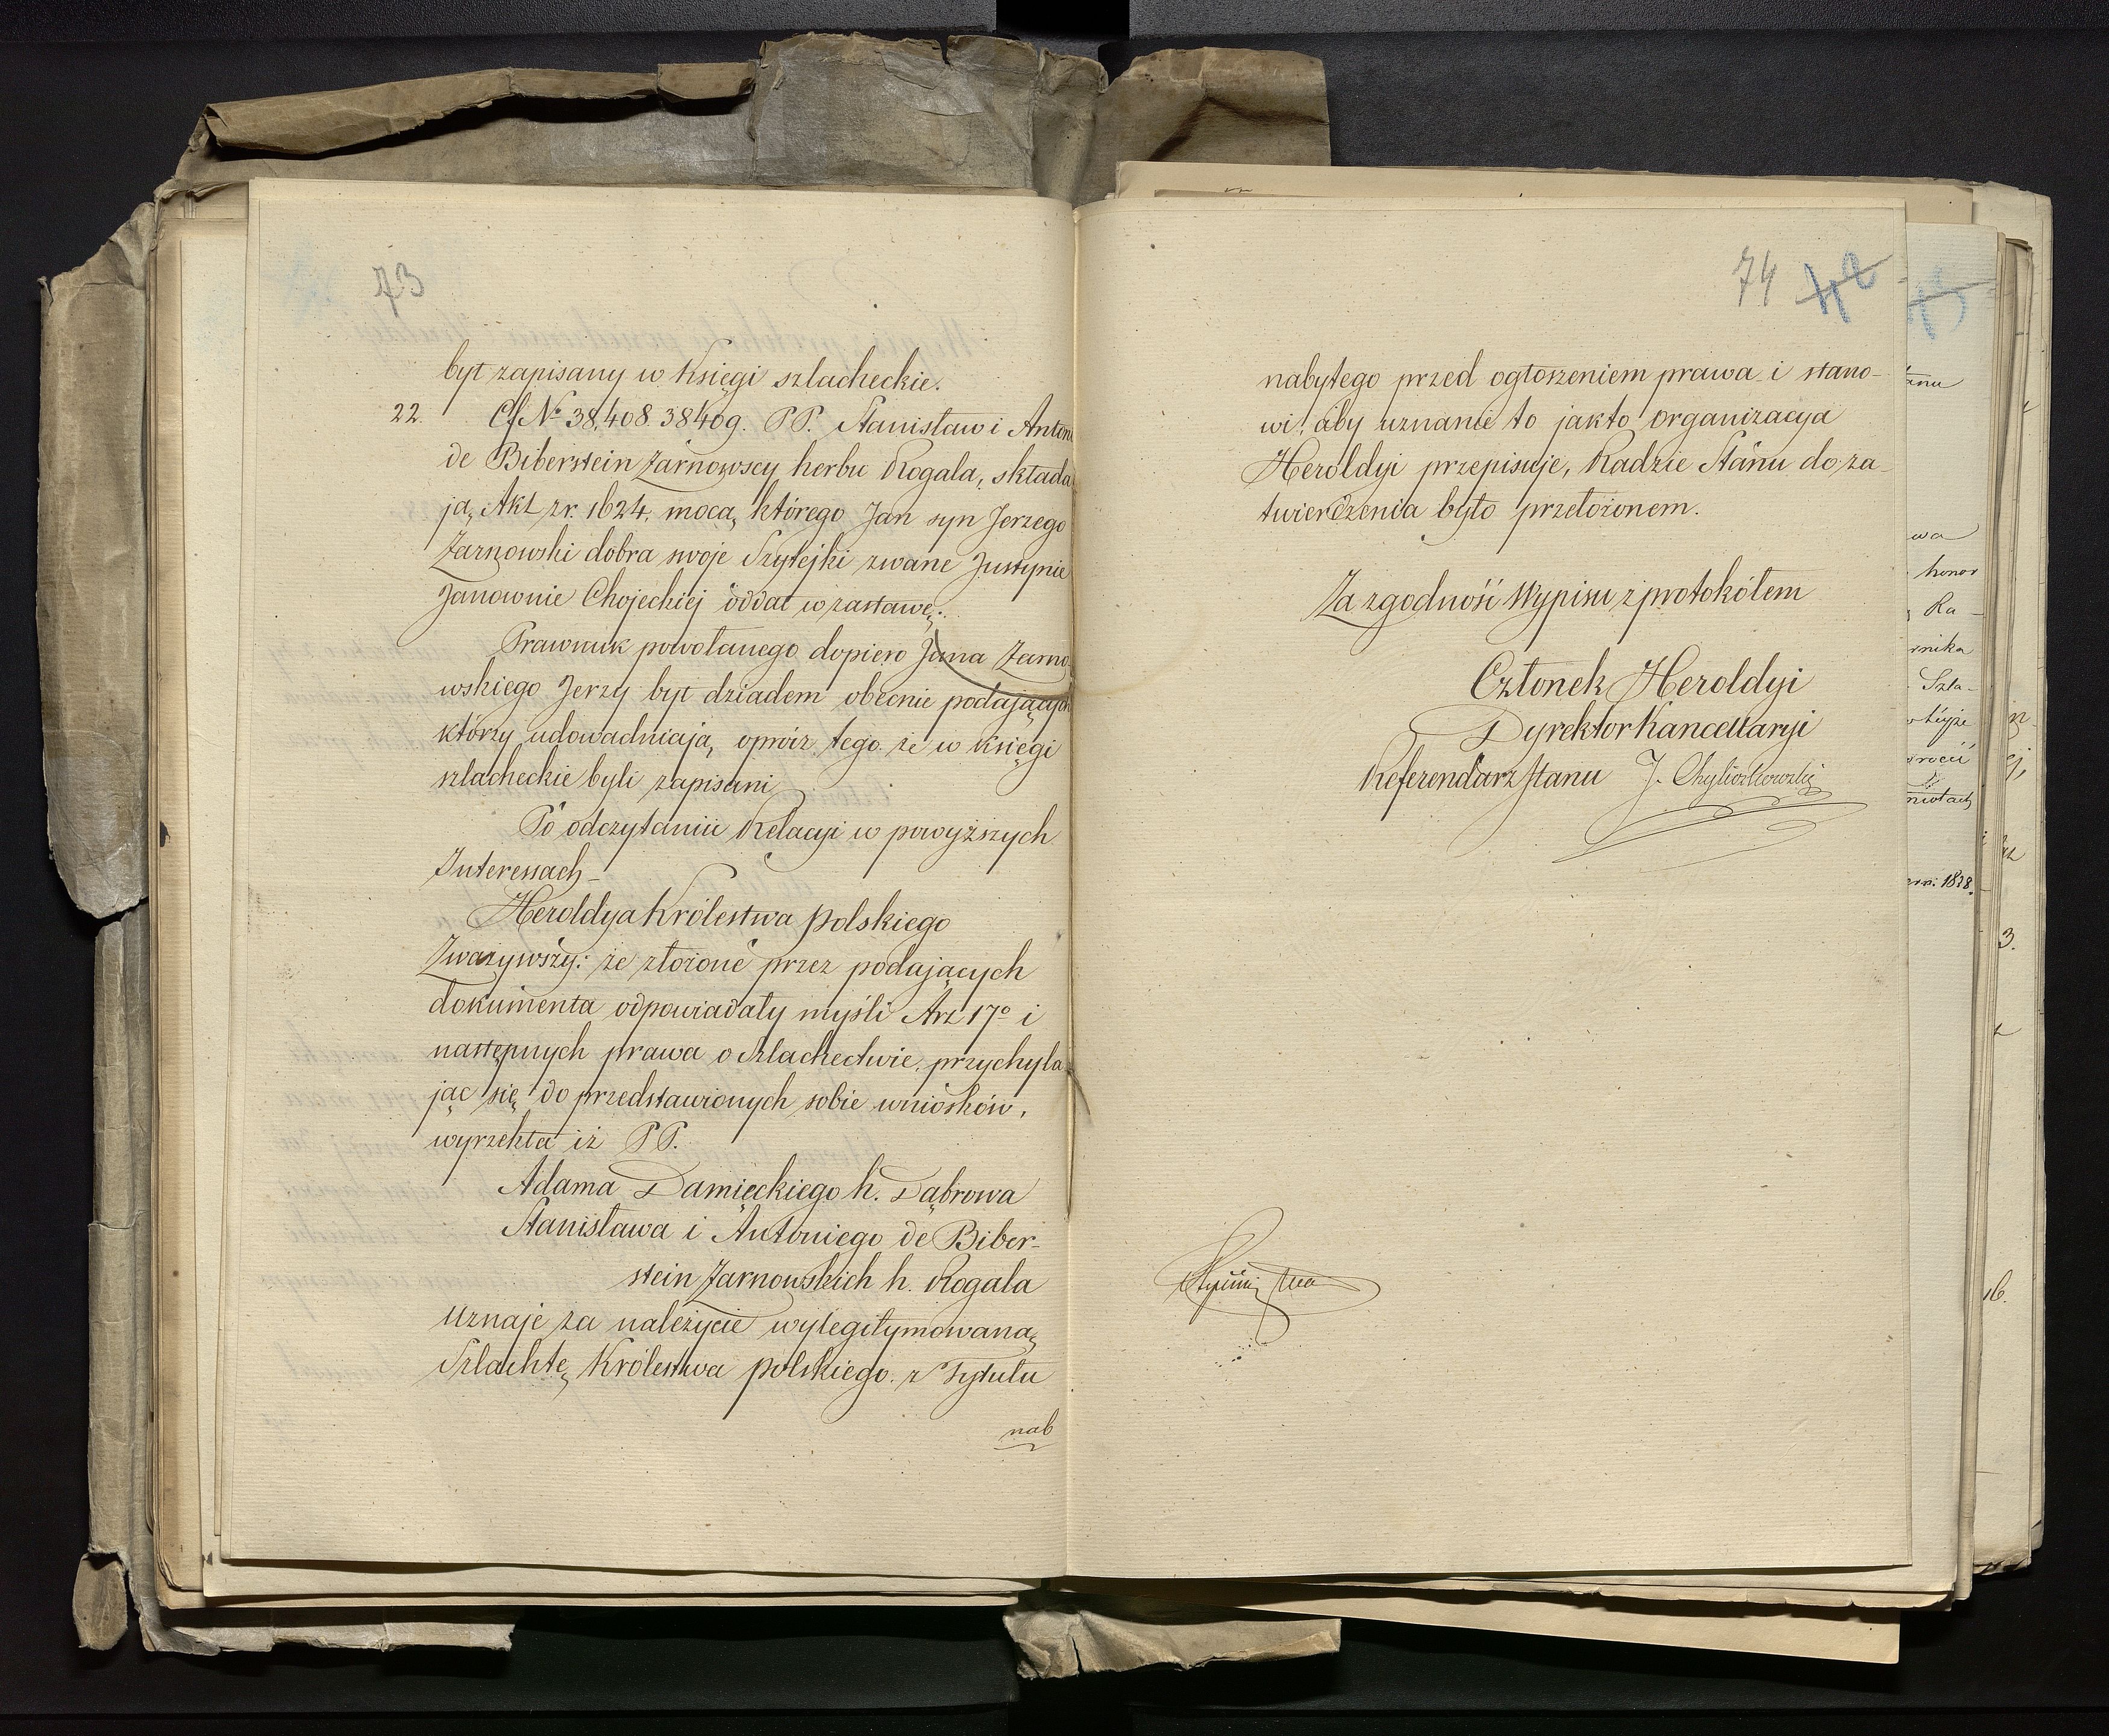 73
był zapisany w Księgi szlacheckie.
22. Cf No 38,408 38409. PP. Stanisław i Anton
de Biberstein Żarnowscy herbu Rogala, składa
ją, Akt z r. 1624. mocą, którego Jan syn Jerzego
Żarnowski dobra swoje Szylejki zwane Justynie
Janownie Chojeckiej oddał w zastawę.
Prawnuk powołanego dopiero Jana Żarno
wskiego Jerzy był dziadem obecnie podających
którzy udowadniają, oprócz tego że w księgi
szlacheckie byli zapisani
Po odczytaniu Relacyi w powyższych
Interessach –
Heroldya Królestwa polskiego
Zważywszy: że złożone przez podających
dokumenta odpowiadały myśli Art 17o i
następnych prawa o Szlachectwie, przychyla
jąc się do przedstawionych sobie wniosków,
wyrzekła iż PP.
Adama Damięckiego h. Dąbrowa
Stanisława i Antoniego de Biber-
stein Żarnowskich h. Rogala
uznaje za należycie wylegitymowaną
Szlachtę Królestwa polskiego. z Tytułu
nab
74 42
nabytego przed ogłoszeniem prawa i stano-
wi, aby uznanie to jak to organizacya
Heroldyi przepisuje, Radzie Stanu do za-
twierdzenia było przełożonem.
Za zgodność Wypisu z protokółem
Członek Heroldyi
Dyrektor Kancellaryi
Referendarz Stanu J. Chyliczkowski
wa
honor
Ra-
rnika
Szla-
1828.
3.